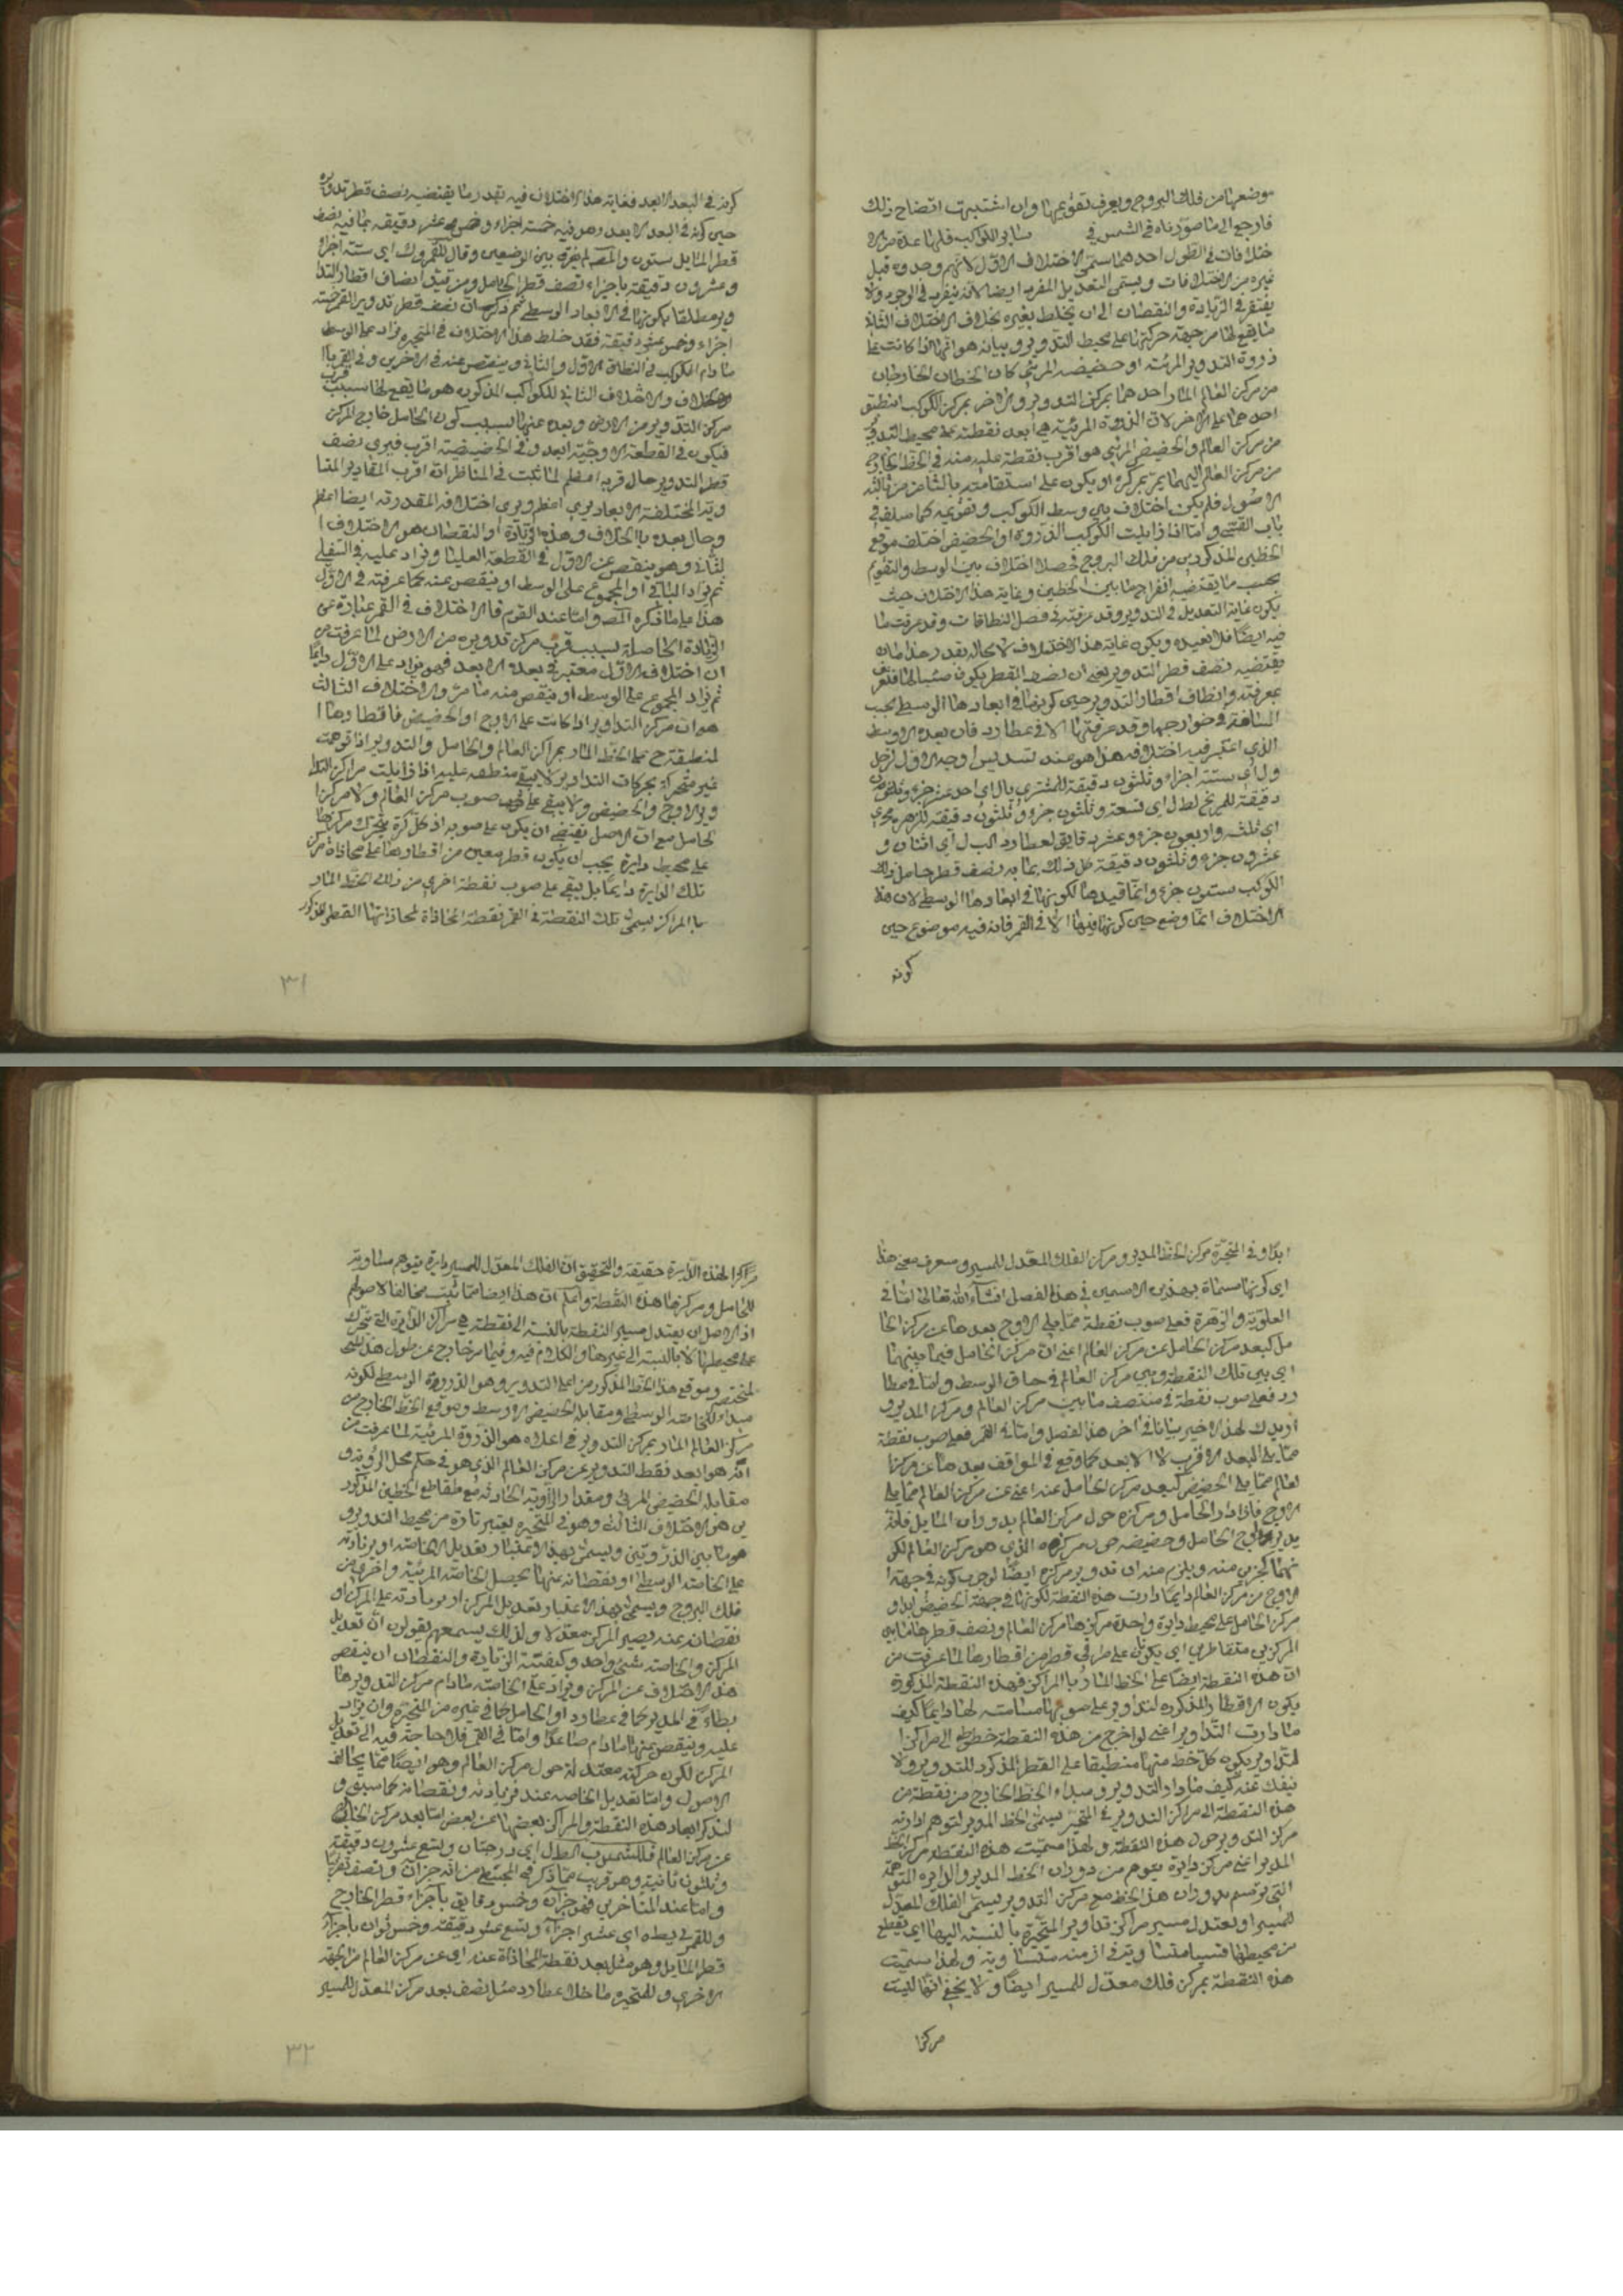 موضعها من فلك البروج ويعرف تقويمها وان اشتبهت اتضاح ذلك
فارجع الى ما صورناه في الشمس في سائر الكواكب فلها عدة من الا
ختلافات في الطول احدهما يسمى الاختلاف الاول لانهم وجدوه قبل
غيره من الاختلافات ويسمى التعديل المفرد ايضا لانه ينفرد في الوجود ولا
يفتقر في الزيادة والنقصان الى ان يخلط بغيره بخلاف الاختلاف الثاني
ما يقع لها من جهة حركتها على محيط التدوير وبيانه هو انها اذا كانت على
ذروة التدوير المرئية او حضيضه المرئي كان الخطان الخارجان
من مركز العالم المار احدهما بمركز التدوير والاخر بمركز الكوكب انطبق
احدهما على الاخر لان الذروة المرئية هي ابعد نقطة على محيط التدوير
من مركز العالم والحضيض المرئي هو اقرب نقطة عليه منه في الخط الخارج
من مركز العالم اليهما يمر بمركزه او يكون على استقامته بالثامن من ثالثة
الاصول فلم يكن اختلاف بين وسط الكوكب وتقويمه كما سلف في
باب القسي واما اذا زايلت الكوكب الذروة او الحضيض اختلف موقع
الخطين المذكورين من فلك البروج فحصلا اختلاف بين الوسط والتقويم
بحسب ما يقتضيه انفراج ما بين الخطين وغاية هذا الاختلاف حيث
يكون غاية التعديل في التدوير وقد عرفته في فصل النطاقات وقد عرفت ما
فيه ايضا فلا نعيده ويكون غاية هذا الاختلاف لا محالة بقدر
يقتضيه نصف قطر التدوير يعني ان نصف القطر يكون
بمعرفته وانصاف اقطار التدوير حين كونها في ابعادها الوسطى بحسب
المسافة في خوارجها وقد عرفتها الا في عطارد فان بعده الاوسط
الذي اعتبر فيه اختلافه هذا هو عند تسديس اوجه الاول لزحل
ول اي ستة اجزاء وثلثون دقيقة للمشتري يال اي احد عشر جزء وثلثون
دقيقة للمريخ لطل اي تسعة وثلثون جزء وثلثون دقيقة للزهرة مجي
اي ثلثة واربعون جزء وعشر دقايق لعطارد الب ل اي اثنان و
عشرون جزء وثلثون دقيقة كل ذلك بما به نصف قطر حامل ذلك
الكوكب ستون جزء وانما قيدها لكونها في ابعادها الوسطى لان هذا
الاختلاف انما وضع حين كونها فيها الا في القمر فانه فيه موضوع حين
كونه
كونه في البعد الابعد فغاية هذا الاختلاف فيه بقدر ما يقتضيه نصف قطر تدويره
حين كونه في البعد الابعد وهو فيه خمسة اجزاء وخمس عشر دقيقة بما فيه نصف
قطر المايل ستون والمص لم يفرق بين الوضعين وقال للقمر وك اي ستة اجزاء
وعشرون دقيقة باجزاء نصف قطر الحامل ومن قيد انصاف اقطار التدا
وير مطلقا بكونها في الابعاد الوسطى ثم ذكر ان نصف قطر تدوير القمر خمسة
اجزاء وخمس عشرة دقيقة فقد خلط هذا الاختلاف في المتحيرة يزاد على الوسط
ما دام الكوكب في النطاق الاول والثاني وينقص عنه في الاخرين وفي القمر با
لخلاف والاختلاف الثاني للكواكب المذكورة هو ما يقع لها بسبب قرب
مركز التدوير من الارض وبعده عنها بسبب كون الحامل خارج المركز
فيكون في القطعة الاوجية ابعد وفي الحضيضية اقرب فيرى نصف
قطر التدوير حال قربه اعظم لما ثبت في المناظر ان اقرب المقادير المتسا
وية المختلفة الابعاد يرى اعظم ويرى اختلافه المقدر به ايضا اعظم
وحال بعده بالخلاف وهذه الزيادة او النقصان هو الاختلاف ا
لثاني وهو ينقص عن الاول في القطعة العليا ويزاد عليه في السفلى
ثم يزاد الباقي او المجموع على الوسط او ينقص عنه كما عرفته في الاول
هذا ما ذكره المص واما عند القوم فالاختلاف في القمر عبارة عن
الزيادة الحاصلة بسبب قرب مركز تدويره من الارض لما عرفت من
ان اختلافه الاول معتبر في بعده الابعد فهو يزاد على الاول دايما
ثم يزاد المجموع على الوسط او ينقص منه ما مر والاختلاف الثالث
هو ان مركز التداوير اذا كانت على الاوج او الحضيض فاقطارها ا
لمنطبقة ح على الخط المار بمراكز العالم والحامل والتدوير اذا توهمت
غير متحركة بحركات التداوير لا يبقى منطبقة عليه اذا زايلت مراكز التدا
وير الاوج والحضيض ولا يبقى على صوب مركز العالم ولا مركز ا
لحامل مع ان الاصل يقتضي ان يكون على صوبه اذ كل كرة يتحرك مركزها
على محيط دايرة يجب ان يكون قطر معين من اقطارها على محاذاة مركز
تلك الدايرة دايما بل يبقى على صوب نقطة اخرى من ذلك الخط المار
بالمراكز يسمى تلك النقطة في القمر نقطة المحاذاة لمحاذاتها القطر المذكور
٣١
ابدا وفي المتحيرة مركز الخط المدير ومركز الفلك المعدل للمسير وسيعرف معنى هذا
اي كونها مسماة بهذين الاسمين في هذا الفصل انشاء الله تعالى اما في
العلوية والزهرة فعلى صوب نقطة مما يلي الاوج بعدها عن مركز الحا
مل كبعد مركز الحامل عن مركز العالم اعني ان مركز الحامل فيما بينهما
اي بين تلك النقطة وبين مركز العالم في حاق الوسط واما في عطا
رد فعلى صوب نقطة في منتصف ما بين مركز العالم ومركز المدير و
ازيدك لهذا الاخير بيانا في اخر هذا الفصل واما في القمر فعلى صوب نقطة
مما يلي البعد الاقرب لا الابعد كما وقع في المواقف بعدها عن مركز ا
لعالم مما يلي الحضيض كبعد مركز الحامل عنه اعني عن مركز العالم مما يلي
الاوج فاذا دار الحامل ومركزه حول مركز العالم بدوران المايل فانه
يدير اوج الحامل وحضيضه حول مركزه الذي هو مركز العالم لكو
نهما كجزئين منه ويلزم منه ان تدوير مركزه ايضا لوجوب كونه في جهة ا
لاوج من مركز العالم دايما دارت هذه النقطة لكونها في جهة الحضيض ابدا و
مركز الحامل على محيط دايرة واحدة مركزها مركز العالم ونصف قطرها ما بين
المركزين متقاطرين اي يكونان على طرفي قطر من اقطارها لما عرفت من
ان هذه النقطة ايضا على الخط المار بالمراكز فهذه النقطة المذكورة
يكون الاقطار المذكورة للتداوير على صوبها مسامتة لها دايما كيف
ما دارت التداوير اعني لو اخرج من هذه النقطة خطوط الى مراكز ا
لتداوير يكون كل خط منها منطبقا على القطر المذكور للتدوير ولا
ينفك عنه كيف ما دار التدوير ومبداء الخط الخارج من نقطة من
هذه النقطة الى مراكز التدوير في المتحيرة يسمى الخط المدير لتوهم ادارته
مركز التدوير حول هذه النقطة ولهذا سميت هذه النقطة مركز الخط
المدير اعني مركز دايرة يتوهم من دوران الخط المدير والدايرة المتوهمة
التي يرتسم بدوران هذا الخط مع مركز التدوير يسمى الفلك المعدل
للمسير او يعتدل مسير مراكز تداوير المتحيرة بالنسبة اليها اي يقطع
من محيطها قسيا متساوية في ازمنة متساوية ولهذا سميت
هذه النقطة بمركز فلك معدل للمسير ايضا ولا يخفى انها ليست
مركزا
مركزا لهذه الدايرة حقيقة والتحقيق ان الفلك المعدل للمسير دايرة يتوهم مساوية
للحامل ومركزها هذه النقطة واعلم ان هذا ايضا مما يثبت مخالفا لاصولهم
اذ الاصل ان يعتدل مسير النقطة بالنسبة الى نقطة هي مركز الدايرة التي تتحرك
على محيطها لا بالنسبة الى غيرها والكلام فيه وفيما مر خارج عن طول هذا
المختصر وموقع هذا الخط المذكور من اعلى التدوير وهو الذروة الوسطى لكونه
مبداء للخاصة الوسطى ومقابله الحضيض الاوسط وموقع الخط الخارج من
مركز العالم المار بمركز التدوير في اعلاه هو الذروة المرئية لما عرفت من
انه هو ابعد نقط التدوير عن مركز العالم الذي هو في حكم محل الرؤية و
مقابله الحضيض المرئي ومقدار الزاوية الحادثة من تقاطع الخطين المذكور
ين هو الاختلاف الثالث وهو في المتحيرة يعتبر تارة من محيط التدوير و
هو ما بين الذروتين ويسمى بهذا الاعتبار تعديل الخاصة او بزيادته
على الخاصة الوسطى او نقصانه عنها يحصل الخاصة المرئية واخرى من
فلك البروج ويسمى بهذا الاعتبار تعديل المركز او بزيادته على المركز او
نقصانه عنه يصير المركز معدلا ولذلك يسمعهم يقولون ان تعديل
المركز والخاصة شئ واحد وكيفية الزيادة والنقصان ان ينقص
هذا الاختلاف عن المركز ويزاد على الخاصة ما دام مركز التدوير ها
بطا في المدير كما في عطارد او الحامل كما في غيره من المتحيرة وان يزاد
عليه وينقص عنها ما دام صاعدا واما في القمر فلا حاجة فيه الى تعديل
المركز لكون حركته معتدلة حول مركز العالم وهو ايضا مما يخالف
الاصول واما تعديل الخاصة عنده فزيادته ونقصانه كما سبق و
لنذكر ابعاد هذه النقطة والمراكز بعضها عن بعض اما بعد مركز الخارج
عن مركز العالم فللشمس ب الطل اي درجتان وتسع عشرون دقيقة
وثلثون ثانية وهو قريب مما ذكر في المجسطي من انه جزان ونصف تقريبا
واما عند المتاخرين فهو جزان وخمس دقايق باجزاء قطر الخارج
وللقمر ي يط اي عشر اجزاء وتسع عشر دقيقة باجزاء
قطر المايل وهو مثل بعد نقطة المحاذاة عنه اي عن مركز العالم من الجهة
الاخرى وللمتحيرة ما خلا عطارد مثل نصف بعد مركز المعدل للمسير
٣٢